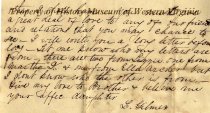 Property of History Museum of Western Virginia
a great deal of love to any of our friends
and relations that you may chance to
see. I will write you a long letter before
long. Let me know who my letters are
from, there are two from Lizzie, one from
I dont know who the other is from.
Give my love to Brother & believe me
your affec daughter
L. Gilmer